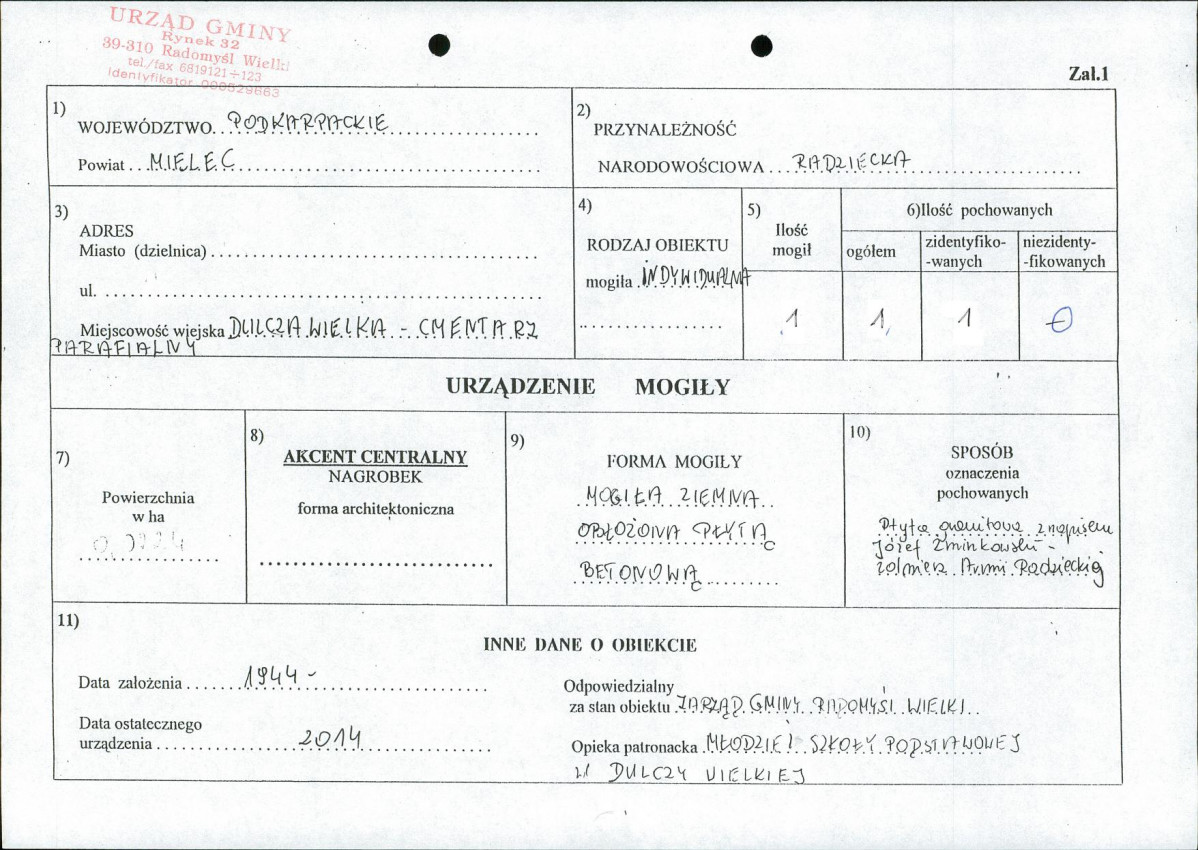 URZĄD GMINY
Rynek 32
39-310 Radomyśl Wielki
tel./fax 6819121÷123
identyfikator 000529663
Zał.1
1)
WOJEWÓDZTWO. PODKARPACKIE
Powiat ... MIELEC
2)
PRZYNALEŻNOŚĆ
NARODOWOŚCIOWA ... RADZIECKA
3)
ADRES
Miasto (dzielnica)
ul.
Miejscowość wiejska DULCZA WIELKA - CMENTARZ
PARAFIALNY
4)
RODZAJ OBIEKTU
mogiła . INDYWIDUALNA
5)
Ilość
mogił
1
6)Ilość pochowanych
ogółem
1
zidentyfiko-
-wanych
1
niezidenty-
-fikowanych
0
URZĄDZENIE MOGIŁY
7)
Powierzchnia
w ha
8)
AKCENT CENTRALNY
NAGROBEK
forma architektoniczna
9)
FORMA MOGIŁY
MOGIŁA ZIEMNA
OBŁOŻONA PŁYTĄ
BETONOWĄ
10)
SPOSÓB
oznaczenia
pochowanych
Płyta granitowa z napisem
Józef Zminkowski -
żołnierz Armii Radzieckiej
11)
INNE DANE O OBIEKCIE
Data założenia 1944 -
Data ostatecznego
urządzenia 2014
Odpowiedzialny
za stan obiektu ZARZĄD GMINY RADOMYŚL WIELKI
Opieka patronacka MŁODZIEŻ SZKOŁY PODSTAWOWEJ
W DULCZY WIELKIEJ